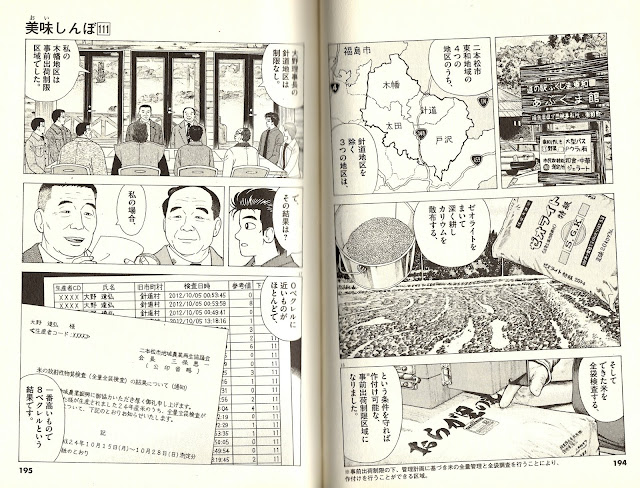 二本松市
東和地域の
４つの
地区のうち、
福島市
木幡
針道
太田
戸沢
針道地区を
除く
３つの地区は、
道の駅ふくしま東和
あぶくま館
大型バス
和食・中華
ジェラート
ゼオライトを
まいて
深く耕し
カリウムを
散布する。
ゼオライト
特級
S.G.K
そして
できた米を
全袋検査する。
という条件を守れば
作付け可能な、
※事前出荷制限区域に
なりました。
※事前出荷制限の下、管理計画に基づき米の全量管理と全袋調査を行うことにより、
作付けを行うことができる区域。
194
美味しんぼ 111
おい
大野理事長の
針道地区は
制限なし。
私の
木幡地区は
事前出荷制限
区域でした。
で、
その結果は？
私の場合、
０ベクレルに
近いものが
ほとんどで、
生産者CD 氏名 旧市町村 検査日時 参考値 下
XXXX 大野 達弘 針道村 2012/10/05 00:53:45 0
XXXX 大野 達弘 針道村 2012/10/05 00:53:59 0
大野 達弘 針道村 2012/10/05 00:54:41 8
2012/10/05 13:18:16 0 11
大野 達弘 様
<生産者コード:XXXX>
二本松市地域農業再生協議会
会長 三保 恵一
（公印省略）
米の放射性物質検査（全量全袋検査）の結果について（通知）
記
24年10月15日(月)～10月28日(日)測定分
一番高いもので
８ベクレルという
結果です。
195